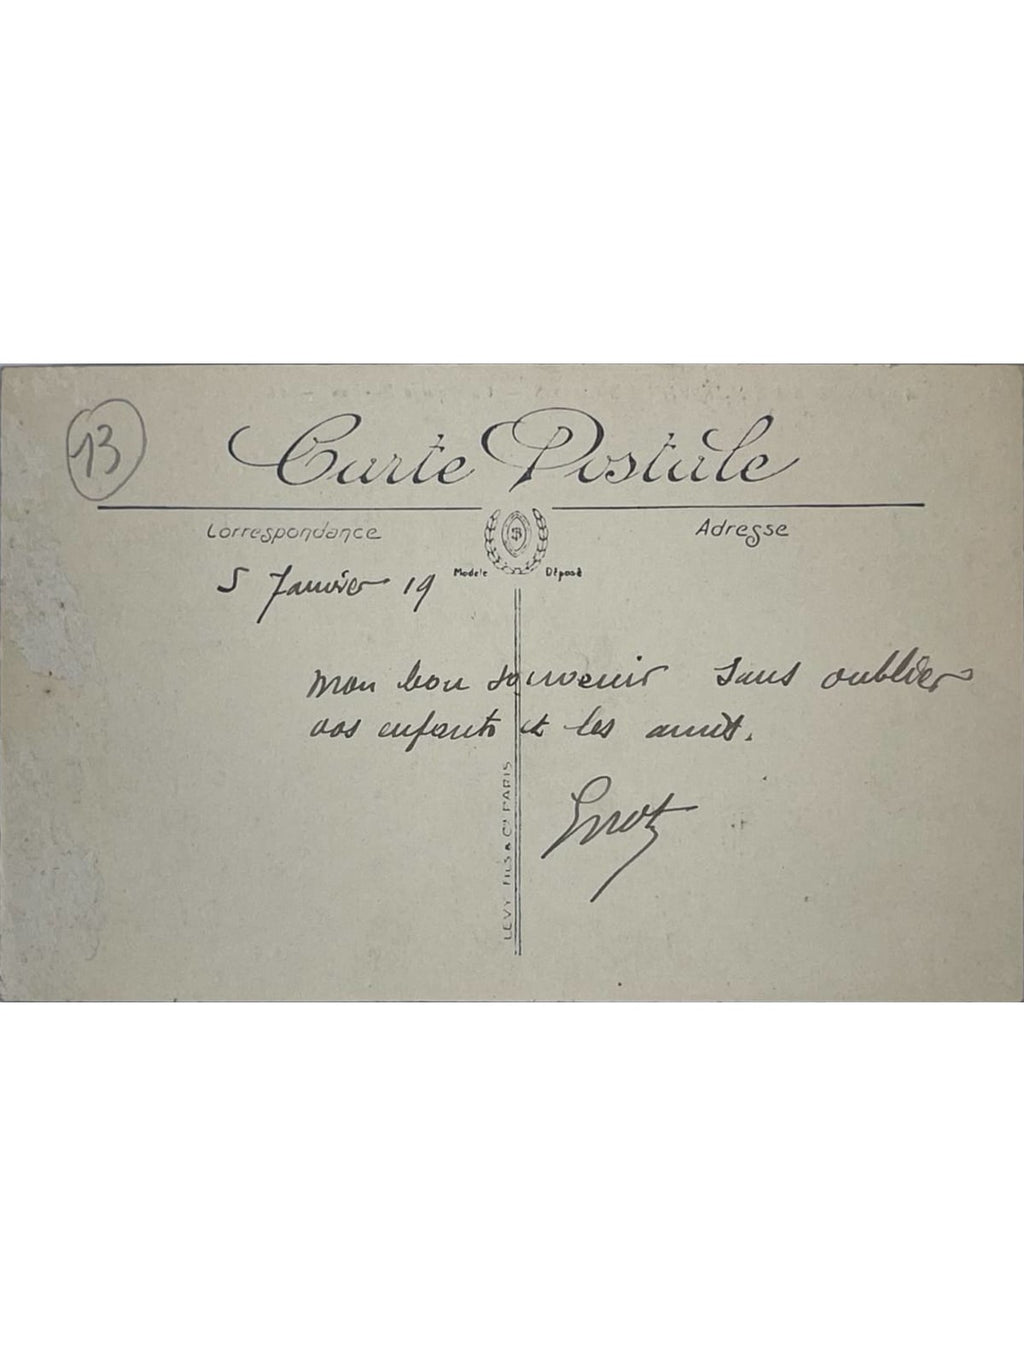 13
Carte Postale
Correspondance
Adresse
Modèle Déposé
5 Janvier 19
mon bon souvenir sans oublier
vos enfants et les amis.
LEVY FILS & Cie PARIS